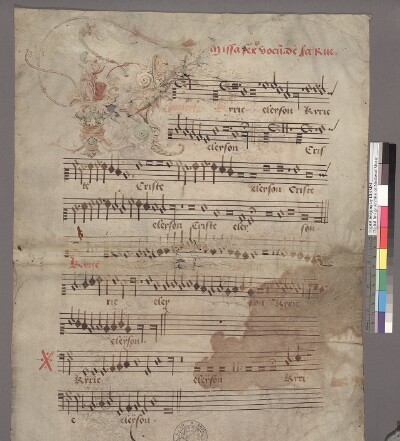 Missa sex vocū de la Rue.
rrie eleyson Kyrie
eleyson Cris
te Criste eleyson Criste
eleyson Criste eley son
Kyrie
rie eley son Kyrie
eleyson
Kyrie eleyson Kyri
e eleyson